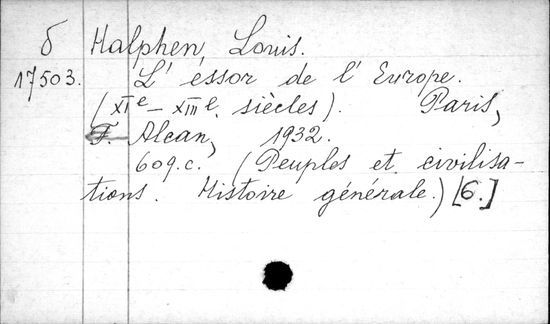 б Halphen, Louis.
17503. L'essor de l'Europe.
(XIe – XIIIe siècles). Paris,
F. Alcan, 1932.
609.c. (Peuples et civilisa-
tions. Histoire générale.) [6.]